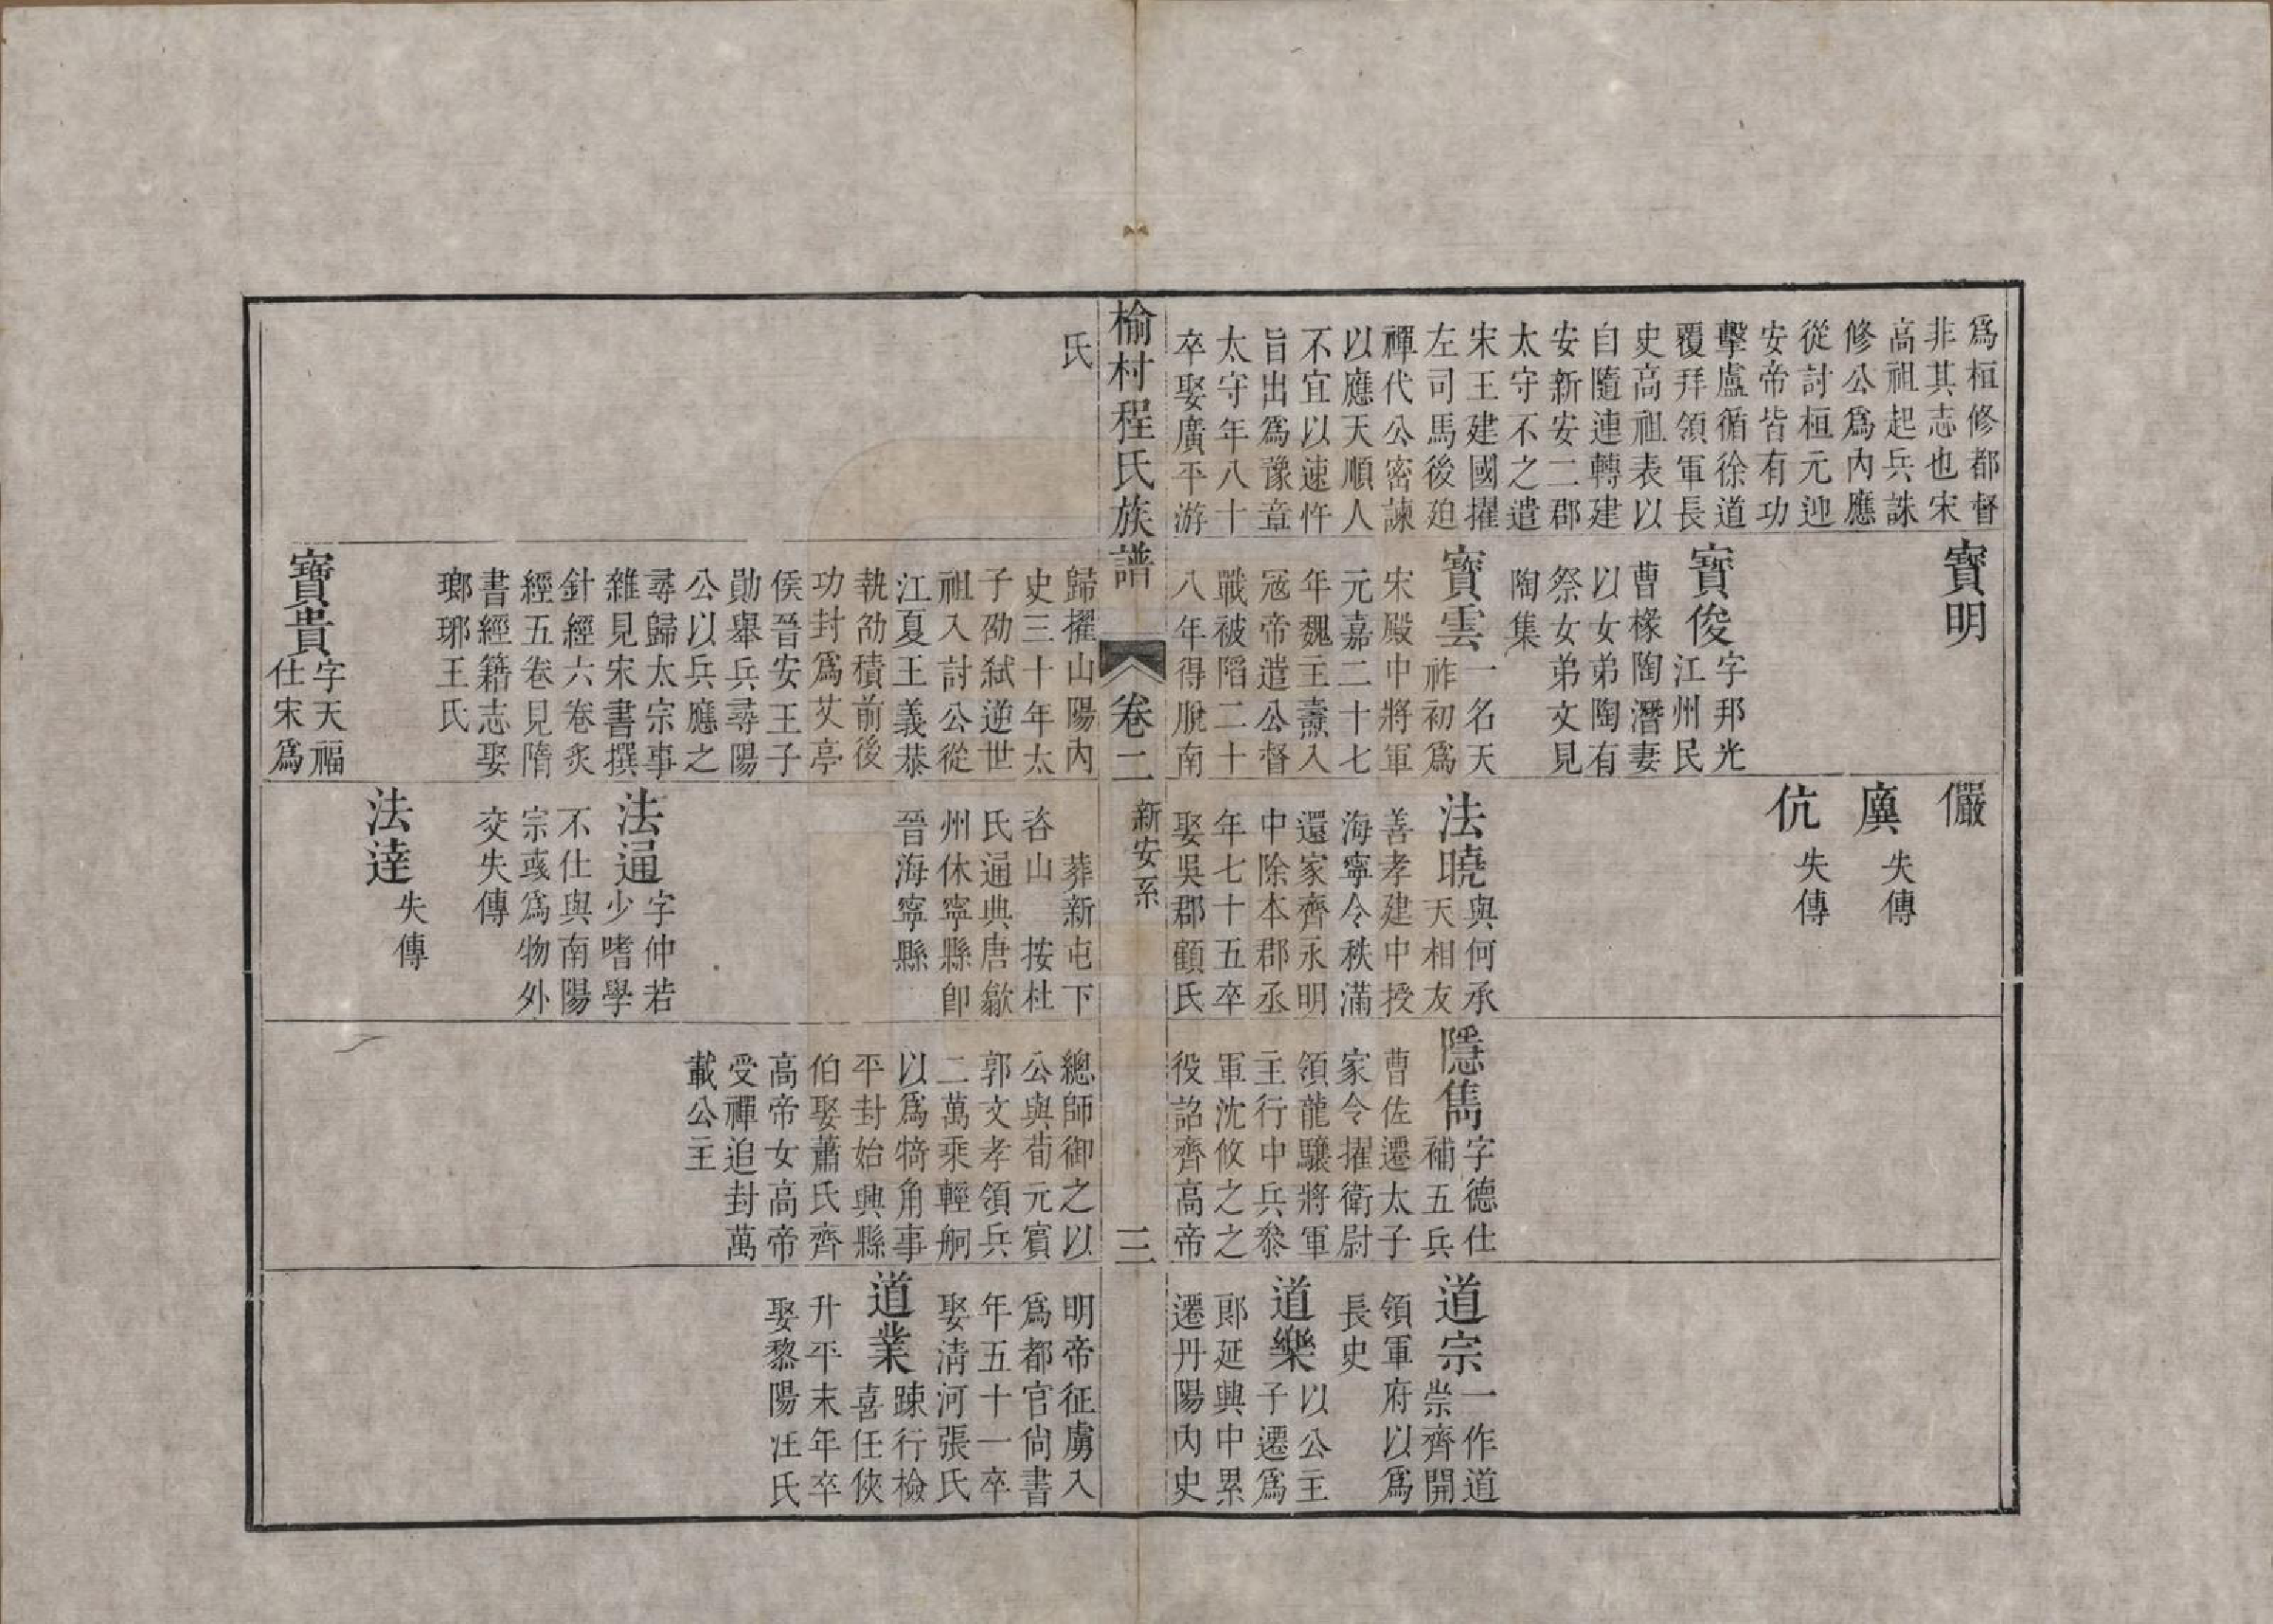 爲桓修都督
非其志也宋
高祖起兵誅
修公爲內應
從討桓元迎
安帝皆有功
擊盧循徐道
覆拜領軍長
史高祖表以
自隨連轉建
安新安二郡
太守不之遣
宋王建國擢
左司馬後廹
禪代公密諫
以應天順人
不宜以速忤
旨出爲豫章
太守年八十
卒娶廣平游
寶明
寶俊
字邦光
江州民
曹椽陶潛妻
以女弟陶有
祭女弟文見
陶集
寶雲
一名天
祚初爲
宋殿中將軍
元嘉二十七
年魏主燾入
冦帝遣公督
戰被䧟二十
八年得脫南
儼
廙
失傳
伉
失傳
法曉
與何承
天相友
善孝建中授
海寧令秩滿
還家齊永明
中除本郡丞
年七十五卒
娶吳郡顧氏
隱雋
字德仕
補五兵
曹佐遷太子
家令擢衛尉
領龍驤將軍
主行中兵叅
軍沈攸之之
役詔齊高帝
道宗
一作道
崇齊開
領軍府以爲
長史
道樂
以公主
子遷爲
郎延興中累
遷丹陽內史
榆村程氏族譜
卷二
新安系
三
氏
歸擢山陽內
史三十年太
子劭弒逆世
祖入討公從
江夏王義恭
執劭積前後
功封爲艾亭
侯晉安王子
勛舉兵尋陽
公以兵應之
尋歸太宗事
雜見宋書撰
針經六卷炙
經五卷見隋
書經籍志娶
瑯琊王氏
寶貴
字天福
仕宋爲
葬新屯下
各山 按杜
氏通典唐歙
州休寧縣卽
晉海寧縣
法通
字仲若
少嗜學
不仕與南陽
宗彧爲物外
交失傳
法達
失傳
總師御之以
公與荀元賓
郭文孝領兵
二萬乘輕舸
以爲犄角事
平封始興縣
伯娶蕭氏齊
高帝女高帝
受禪追封萬
載公主
明帝征虜入
爲都官尙書
年五十一卒
娶淸河張氏
道業
踈行檢
喜任俠
升平末年卒
娶黎陽汪氏